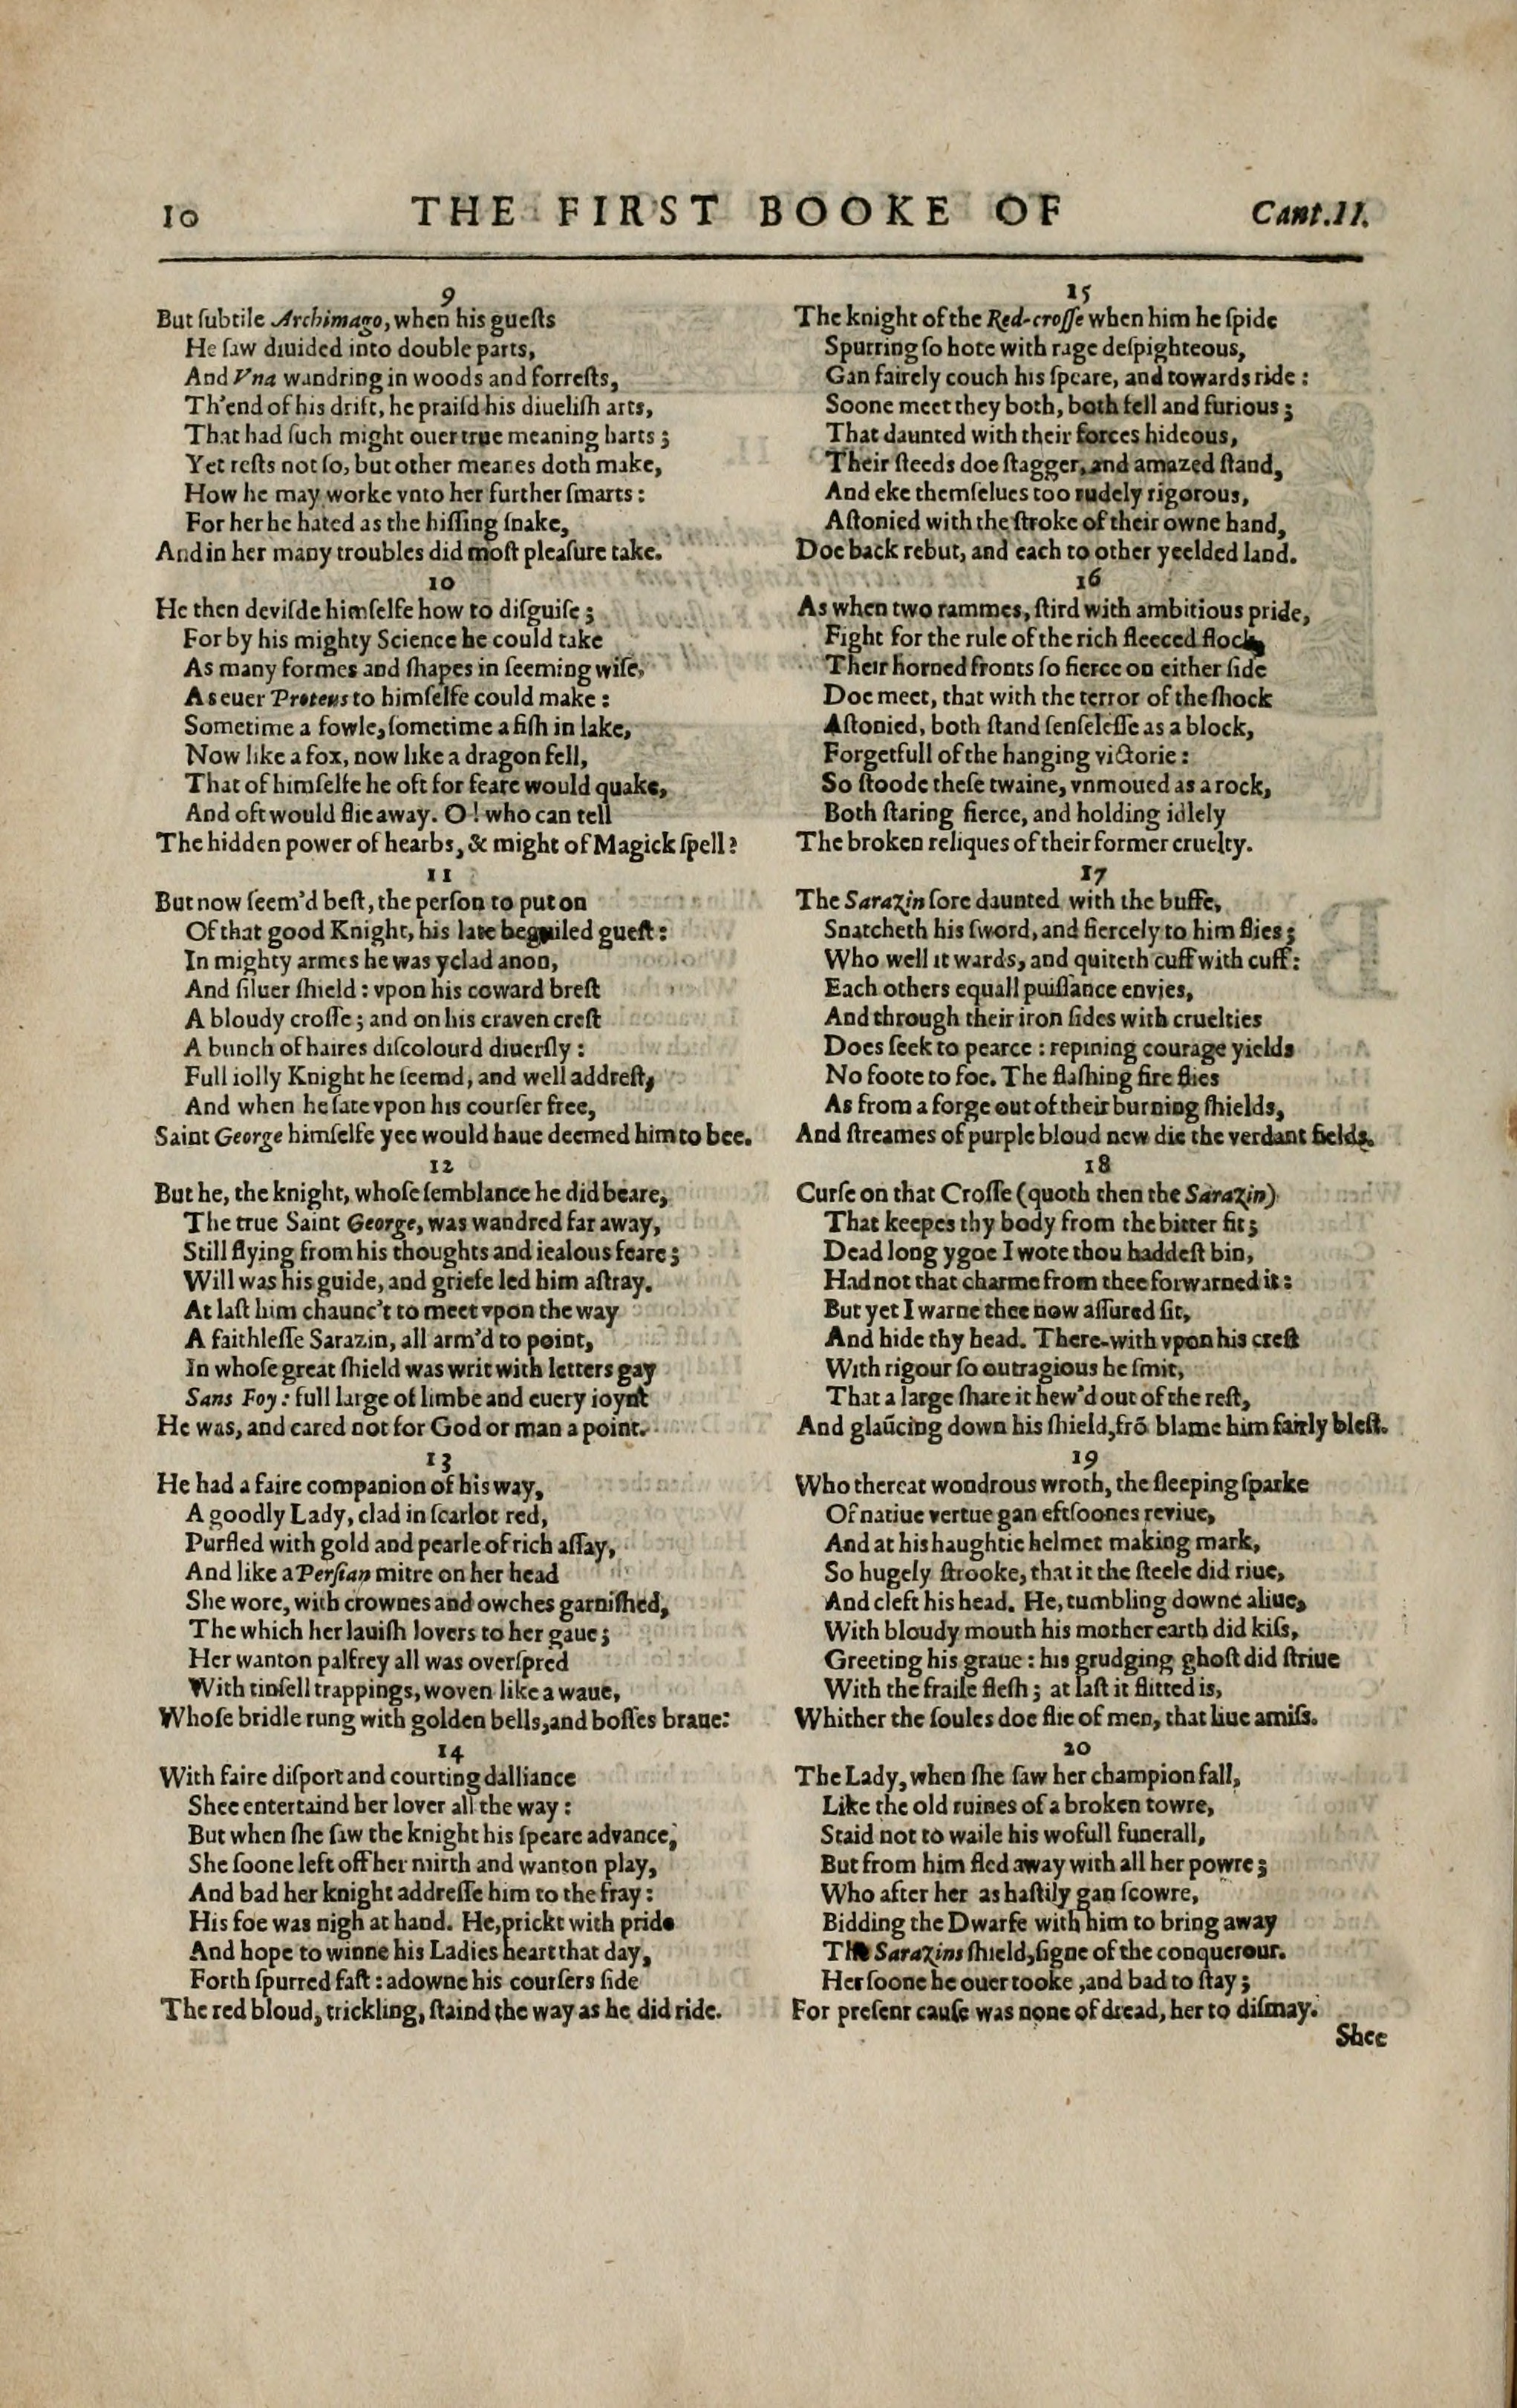 10 THE FIRST BOOKE OF Cant.II.
9
But ſubtile Archimago, when his gueſts
He ſaw diuided into double parts,
And Vna wandring in woods and forreſts,
Th'end of his drift, he praiſd his diueliſh arts,
That had ſuch might ouer true meaning harts;
Yet reſts not ſo, but other meanes doth make,
How he may worke vnto her further ſmarts:
For her he hated as the hiſſing ſnake,
And in her many troubles did moſt pleaſure take.
10
He then deviſde himſelfe how to diſguiſe;
For by his mighty Science he could take
As many formes and ſhapes in ſeeming wiſe,
As euer Proteus to himſelfe could make:
Sometime a fowle, ſometime a fiſh in lake,
Now like a fox, now like a dragon fell,
That of himſelfe he oft for feare would quake,
And oft would flie away. O! who can tell
The hidden power of hearbs, & might of Magick ſpell?
11
But now ſeem'd beſt, the perſon to put on
Of that good Knight, his late beguiled gueſt:
In mighty armes he was yclad anon,
And ſiluer ſhield: vpon his coward breſt
A bloudy croſſe; and on his craven creſt
A bunch of haires diſcolourd diuerſly:
Full iolly Knight he ſeemd, and well addreſt,
And when he ſate vpon his courſer free,
Saint George himſelfe yee would haue deemed him to bee.
12
But he, the knight, whoſe ſemblance he did beare,
The true Saint George, was wandred far away,
Still flying from his thoughts and iealous feare;
Will was his guide, and griefe led him aſtray.
At laſt him chaunc't to meet vpon the way
A faithleſſe Sarazin, all arm'd to point,
In whoſe great ſhield was writ with letters gay
Sans Foy: full large of limbe and euery ioynt
He was, and cared not for God or man a point.
13
He had a faire companion of his way,
A goodly Lady, clad in ſcarlot red,
Purfled with gold and pearle of rich aſſay,
And like a Perſian mitre on her head
She wore, with crownes and owches garniſhed,
The which her lauiſh lovers to her gaue;
Her wanton palfrey all was overſpred
With tinſell trappings, woven like a waue,
Whoſe bridle rung with golden bells, and boſſes braue:
14
With faire diſport and courting dalliance
Shee entertaind her lover all the way:
But when ſhe ſaw the knight his ſpeare advance,
She ſoone left off her mirth and wanton play,
And bad her knight addreſſe him to the fray:
His foe was nigh at hand. He, prickt with pride
And hope to winne his Ladies heart that day,
Forth ſpurred faſt: adowne his courſers ſide
The red bloud, trickling, ſtaind the way as he did ride.
15
The knight of the Red-croſſe when him he ſpide
Spurring ſo hote with rage deſpighteous,
Gan fairely couch his ſpeare, and towards ride:
Soone meet they both, both fell and furious;
That daunted with their forces hideous,
Their ſteeds doe ſtagger, and amazed ſtand,
And eke themſelues too rudely rigorous,
Aſtonied with the ſtroke of their owne hand,
Doe back rebut, and each to other yeelded land.
16
As when two rammes, ſtird with ambitious pride,
Fight for the rule of the rich fleeced flock,
Their horned fronts ſo fierce on either ſide
Doe meet, that with the terror of the ſhock
Aſtonied, both ſtand ſenſeleſſe as a block,
Forgetfull of the hanging victorie:
So ſtoode theſe twaine, vnmoued as a rock,
Both ſtaring fierce, and holding idlely
The broken reliques of their former cruelty.
17
The Sarazin ſore daunted with the buffe,
Snatcheth his ſword, and fiercely to him flies;
Who well it wards, and quiteth cuff with cuff:
Each others equall puiſſance envies,
And through their iron ſides with cruelties
Does ſeek to pearce: repining courage yields
No foote to foe. The flaſhing fire flies
As from a forge out of their burning ſhields,
And ſtreames of purple bloud new die the verdant fields.
18
Curſe on that Croſſe (quoth then the Sarazin)
That keepes thy body from the bitter fit;
Dead long ygoe I wote thou haddeſt bin,
Had not that charme from thee forwarned it:
But yet I warne thee now aſſured ſit,
And hide thy head. There-with vpon his creſt
With rigour ſo outragious he ſmit,
That a large ſhare it hew'd out of the reſt,
And glaūcing down his ſhield, frō blame him fairly bleſt.
19
Who thereat wondrous wroth, the ſleeping ſparke
Of natiue vertue gan eftſoones reviue,
And at his haughtie helmet making mark,
So hugely ſtrooke, that it the ſteele did riue,
And cleft his head. He, tumbling downe aliue,
With bloudy mouth his mother earth did kiſs,
Greeting his graue: his grudging ghoſt did ſtriue
With the fraile fleſh; at laſt it flitted is,
Whither the ſoules doe flie of men, that liue amiſs.
20
The Lady, when ſhe ſaw her champion fall,
Like the old ruines of a broken towre,
Staid not to waile his wofull funerall,
But from him fled away with all her powre;
Who after her as haſtily gan ſcowre,
Bidding the Dwarfe with him to bring away
The Sarazins ſhield, ſigne of the conquerour.
Her ſoone he ouertooke, and bad to ſtay;
For preſent cauſe was none of dread, her to diſmay.
Shee